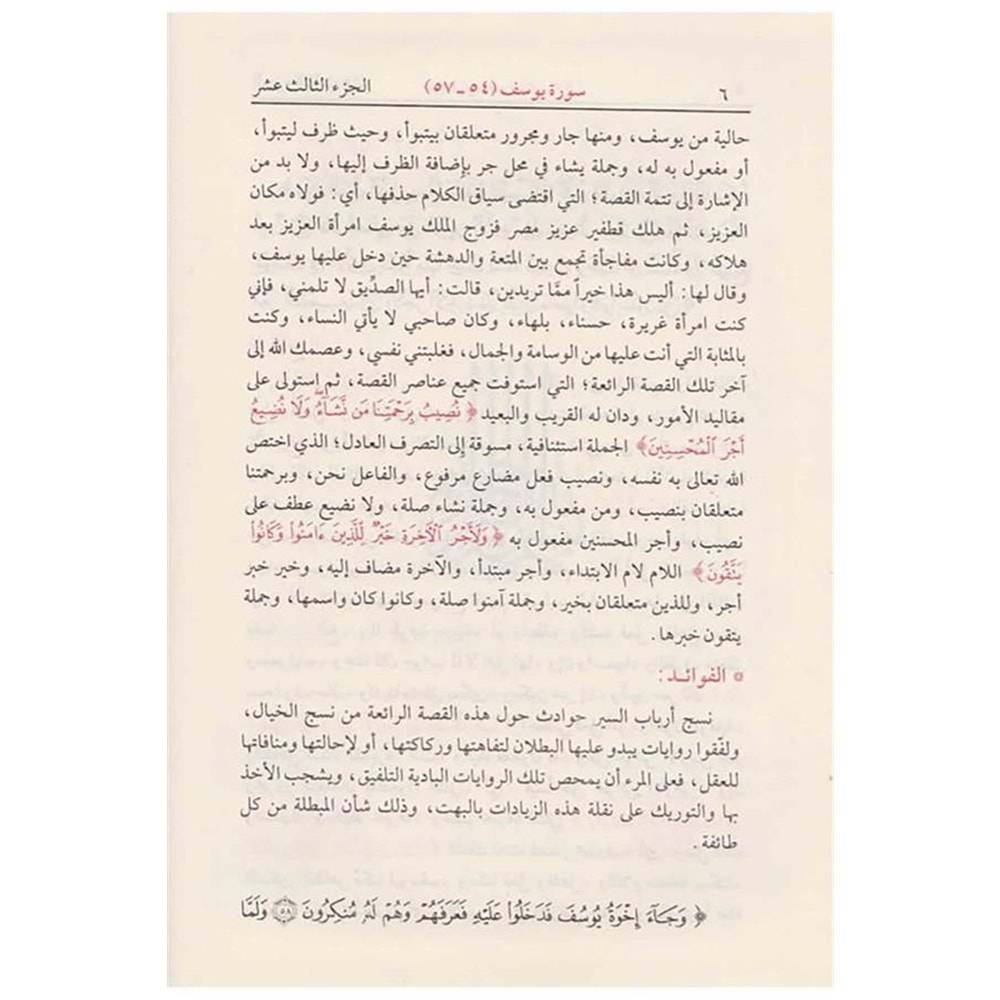 ٦ سورة يوسف (٥٤ ـ ٥٧) الجزء الثالث عشر
حالية من يوسف، ومنها جار ومجرور متعلقان بيتبوأ، وحيث ظرف ليتبوأ،
أو مفعول به له، وجملة يشاء في محل جر بإضافة الظرف إليها، ولا بد من
الإشارة إلى تتمة القصة؛ التي اقتضى سياق الكلام حذفها، أي: فولاه مكان
العزيز، ثم هلك قطفير عزيز مصر فزوج الملك يوسف امرأة العزيز بعد
هلاكه، وكانت مفاجأة تجمع بين المتعة والدهشة حين دخل عليها يوسف،
وقال لها: أليس هذا خيراً ممَّا تريدين، قالت: أيها الصدِّيق لا تلمني، فإني
كنت امرأة غريرة، حسناء، بلهاء، وكان صاحبي لا يأتي النساء، وكنت
بالمثابة التي أنت عليها من الوسامة والجمال، فغلبتني نفسي، وعصمك الله إلى
آخر تلك القصة الرائعة؛ التي استوفت جميع عناصر القصة، ثم إستولى على
مقاليد الأمور، ودان له القريب والبعيد ﴿ نُصِيبُ بِرَحْمَتِنَا مَن نَّشَآءُ وَلَا نُضِيعُ
أَجْرَ ٱلْمُحْسِنِينَ﴾ الجملة استئنافية، مسوقة إلى التصرف العادل؛ الذي اختص
الله تعالى به نفسه، ونصيب فعل مضارع مرفوع، والفاعل نحن، وبرحمتنا
متعلقان بنصيب، ومن مفعول به، وجملة نشاء صلة، ولا نضيع عطف على
نصيب، وأجر المحسنين مفعول به ﴿وَلَأَجْرُ ٱلْآخِرَةِ خَيْرٌ لِّلَّذِينَ ءَامَنُوا۟ وَكَانُوا۟
يَتَّقُونَ﴾ اللام لام الابتداء، وأجر مبتدأ، والآخرة مضاف إليه، وخير خبر
أجر، وللذين متعلقان بخير، وجملة آمنوا صلة، وكانوا كان واسمها، وجملة
يتقون خبرها.
* الفوائد:
نسج أرباب السير حوادث حول هذه القصة الرائعة من نسج الخيال،
ولفّقوا روايات يبدو عليها البطلان لتفاهتها وركاكتها، أو لإحالتها ومنافاتها
للعقل، فعلى المرء أن يمحص تلك الروايات البادية التلفيق، ويشجب الأخذ
بها والتوريك على نقلة هذه الزيادات بالبهت، وذلك شأن المبطلة من كل
طائفة.
﴿ وَجَآءَ إِخْوَةُ يُوسُفَ فَدَخَلُوا۟ عَلَيْهِ فَعَرَفَهُمْ وَهُمْ لَهُۥ مُنكِرُونَ ۝٥٨ وَلَمَّا